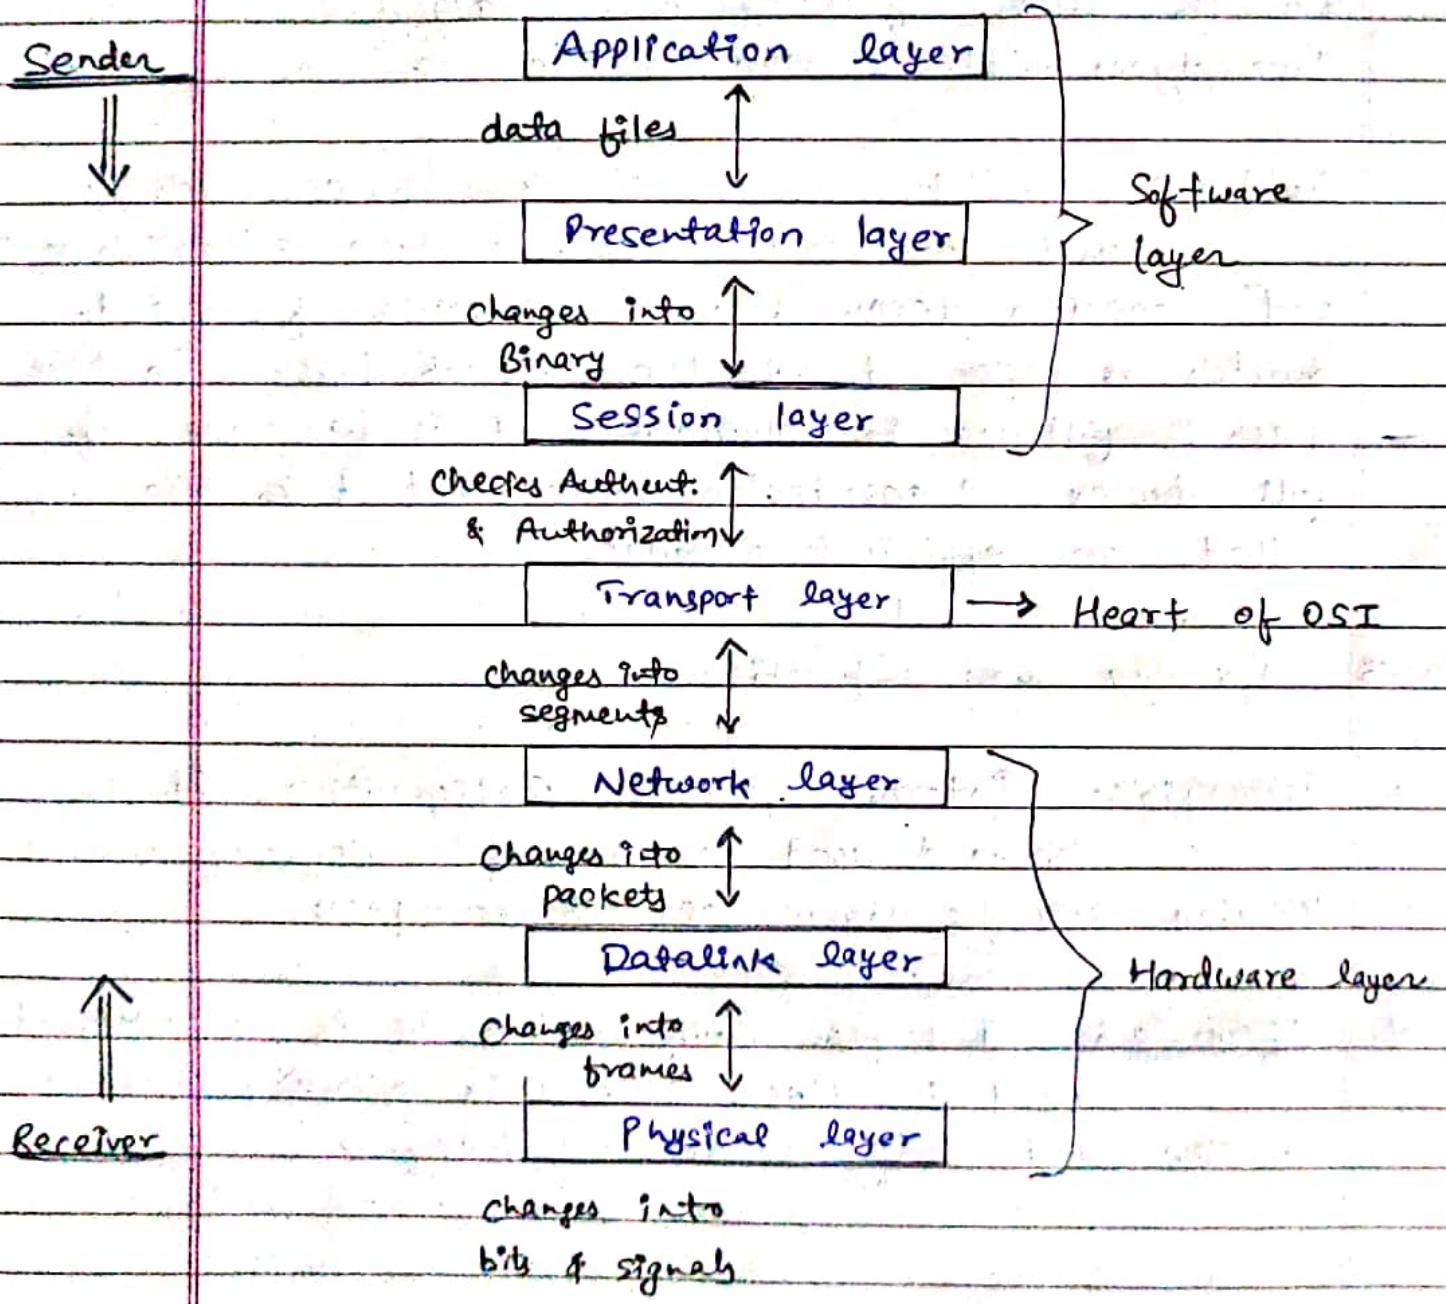 Sender
Application layer
data files
Presentation layer
Software
layer
changes into
Binary
Session layer
checks Authent.
& Authorization
Transport layer → Heart of OSI
changes into
segments
Network layer
changes into
packets
Datalink layer
Hardware layer
changes into
frames
Physical layer
Receiver
changes into
bits & signals